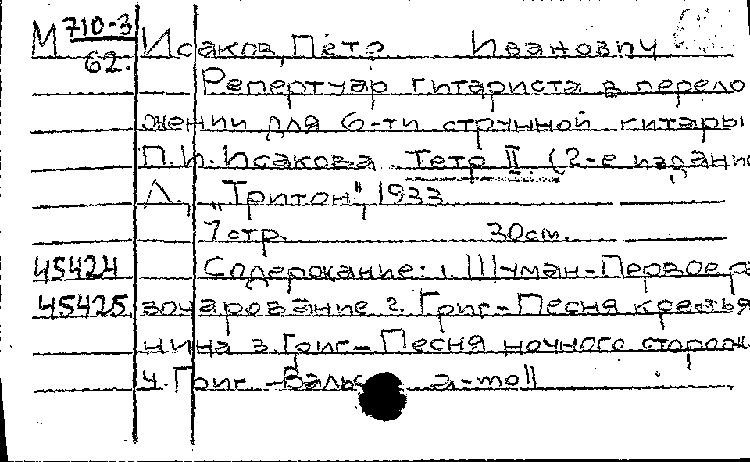 М 710-3
62.
Исаков, Петр Иванович
Репертуар гитариста в перело
жении для 6-ти струнной гитары
П.И. Исакова Тетр II. (2-е издани
Л., "Тритон", 1933
7 стр. 30см.
45424 Содержание: 1. Шуман-Первое ра
45425 зочарование 2. Григ-Песня крестья
нина 3. Григ-Песня ночного сторож
4. Григ-Вальс a-moll